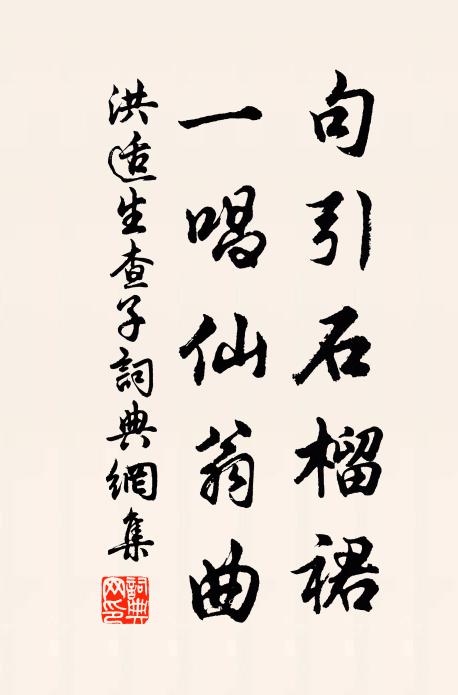 句引石榴裙
一唱仙翁曲
洪适生查子詞典網集
詞典網印